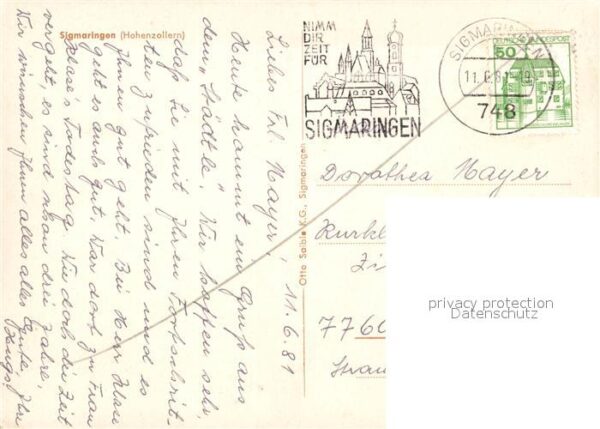 Sigmaringen (Hohenzollern)
11.6.81
Liebes Frl. Mayer,
Heute kommt ein Gruß aus
dem "Städtle". Wir hoffen sehr,
daß Sie mit Ihren Fortschrit-
ten zufrieden sind und es
Ihnen gut geht. Bei Herr
geht es auch gut. War dort zu Frau
Todestag. Wie doch die Zeit
vergeht, es sind schon drei Jahre,
Wir wünschen Ihnen alles alles Gute, Ihre
Otto Saible K.G., Sigmaringen
NIMM
DIR
ZEIT
FÜR
SIGMARINGEN
SIGMARINGEN
11.6.81-19
748
50
DEUTSCHE BUNDESPOST
Dorothea Mayer
Kurkl
7760
privacy protection
Datenschutz